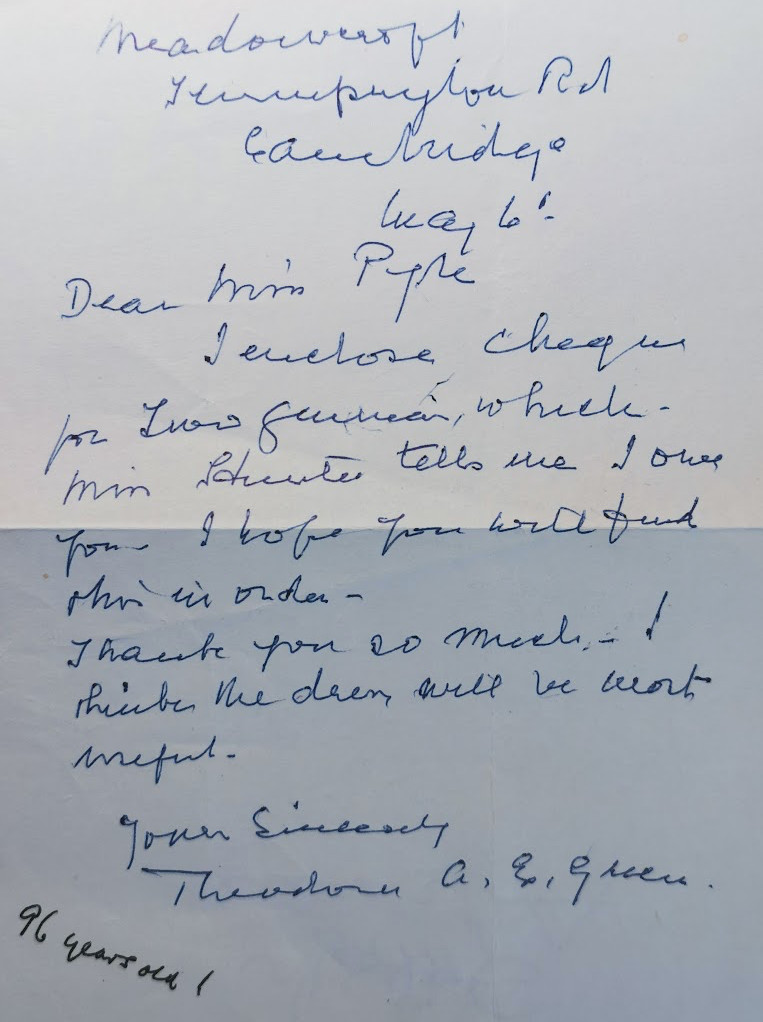 Meadowcroft
Trumpington Rd
Cambridge
May 6th
Dear Miss Pyke
I enclose cheque
for Two guineas, which
Miss Hunter tells me I owe
you I hope you will find
this in order -
Thank you so much, - I
think the dress will be most
useful -
Yours Sincerely
Theodora A. E. Green.
96 years old !